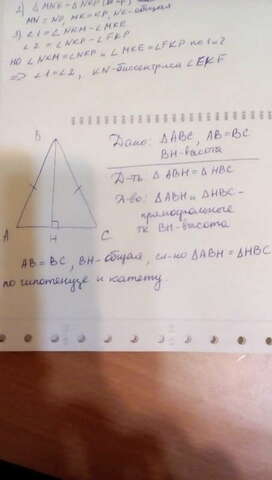 2) △MNE = △NKP
MN = NP, MK = KP, NK - общая
3) ∠1 = ∠NKM - ∠MKE
∠2 = ∠NKP - ∠FKP
но ∠NKM = ∠NKP и ∠MKE = ∠FKP по 1 и 2
⇒ ∠1 = ∠2, KN - биссектриса ∠EKF
B
Дано: △ABC, AB = BC
BH - высота
Д-ть △ABH = △HBC
Д-во: △ABH и △HBC -
прямоугольные
тк BH - высота
A
H
C
AB = BC, BH - общая, сл-но △ABH = △HBC
по гипотенузе и катету